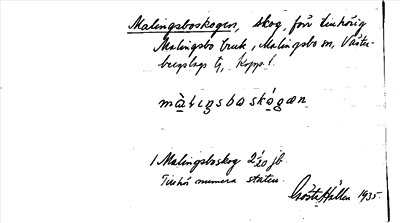 Malingsboskogen, skog, förr tillhörig
Malingsbo bruk, Malingsbo sn, Väster-
bergslags tg, Kopp. l.
màlıŋsboskógæn
1 Malingsboskog 2/20 jb.
Tillhör numera staten.
Gösta Hallén 1935.